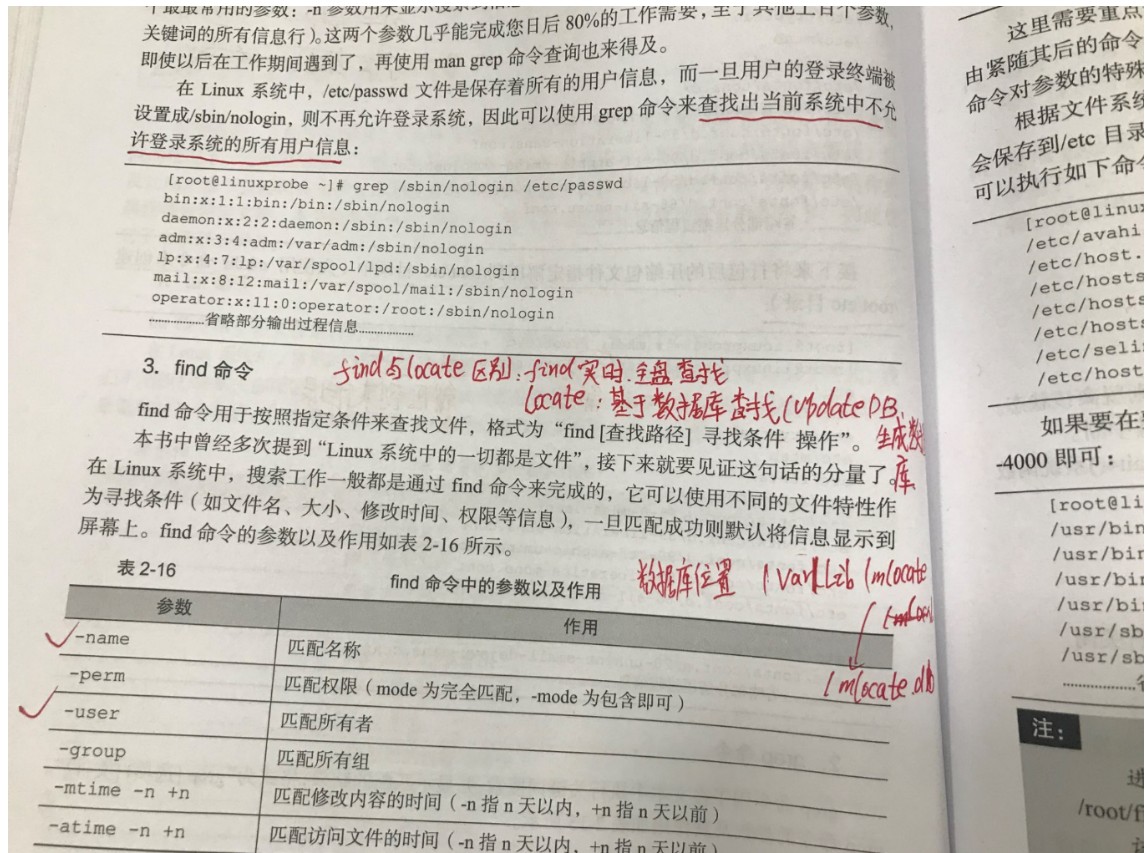 个最最常用的参数：-n 参数用来显示搜索到信息
关键词的所有信息行）。这两个参数几乎能完成您日后 80%的工作需要，至于其他上百个参数，
即使以后在工作期间遇到了，再使用 man grep 命令查询也来得及。
在 Linux 系统中，/etc/passwd 文件是保存着所有的用户信息，而一旦用户的登录终端被
设置成/sbin/nologin，则不再允许登录系统，因此可以使用 grep 命令来查找出当前系统中不允
许登录系统的所有用户信息：
[root@linuxprobe ~]# grep /sbin/nologin /etc/passwd
bin:x:1:1:bin:/bin:/sbin/nologin
daemon:x:2:2:daemon:/sbin:/sbin/nologin
adm:x:3:4:adm:/var/adm:/sbin/nologin
lp:x:4:7:lp:/var/spool/lpd:/sbin/nologin
mail:x:8:12:mail:/var/spool/mail:/sbin/nologin
operator:x:11:0:operator:/root:/sbin/nologin
………………省略部分输出过程信息………………
3. find 命令
find与locate区别：find实时.全盘查找
locate：基于数据库查找(updateDB,
生成数据
库
find 命令用于按照指定条件来查找文件，格式为“find [查找路径] 寻找条件 操作”。
本书中曾经多次提到“Linux 系统中的一切都是文件”，接下来就要见证这句话的分量了。
在 Linux 系统中，搜索工作一般都是通过 find 命令来完成的，它可以使用不同的文件特性作
为寻找条件（如文件名、大小、修改时间、权限等信息），一旦匹配成功则默认将信息显示到
屏幕上。find 命令的参数以及作用如表 2-16 所示。
数据库位置 /var/Lib/mlocate
/mlocate.db
表 2-16 find 命令中的参数以及作用
参数 作用
-name 匹配名称
-perm 匹配权限（mode 为完全匹配，-mode 为包含即可）
-user 匹配所有者
-group 匹配所有组
-mtime -n +n 匹配修改内容的时间（-n 指 n 天以内，+n 指 n 天以前）
-atime -n +n 匹配访问文件的时间（-n 指 n 天以内，+n 指 n 天以前）
这里需要重点
由紧随其后的命令
命令对参数的特殊
根据文件系统
会保存到/etc 目录
可以执行如下命令
[root@linux
/etc/avahi
/etc/host.
/etc/hosts
/etc/hosts
/etc/hosts
/etc/seli
/etc/host
如果要在
-4000 即可：
[root@li
/usr/bin
/usr/bin
/usr/bin
/usr/bi
/usr/sb
/usr/sb
………………省
注：
/root/fi